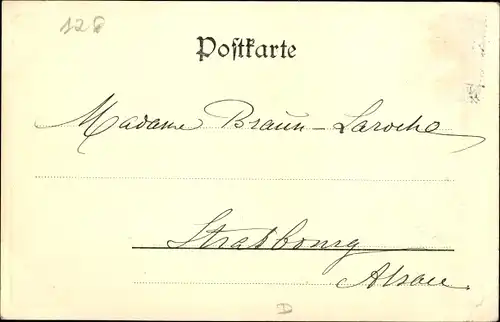 128
Postkarte
Madame Braun-Laroche
Strasbourg
Alsace.
D